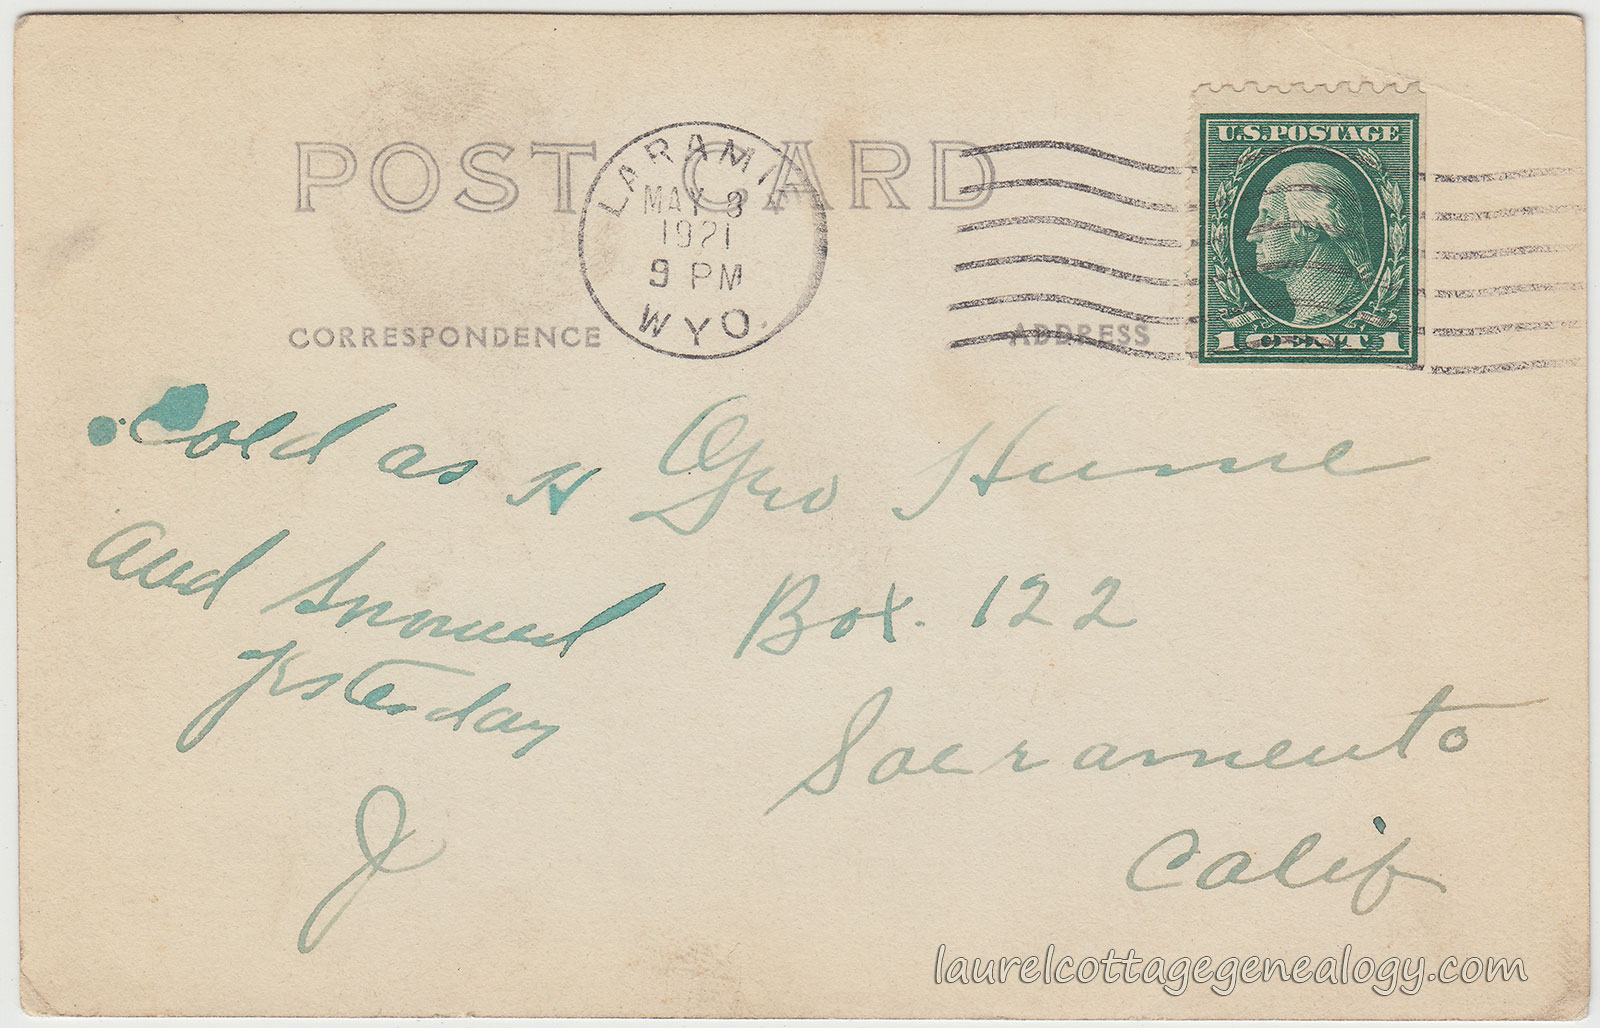 POST CARD
LARAMIE
MAY 8
1921
9 PM
WYO.
U.S. POSTAGE
1 CENT 1
CORRESPONDENCE
ADDRESS
Cold as H
and Snowed
yesterday
J
Geo Hume
Box. 122
Sacramento
Calif
laurelcottagegenealogy.com